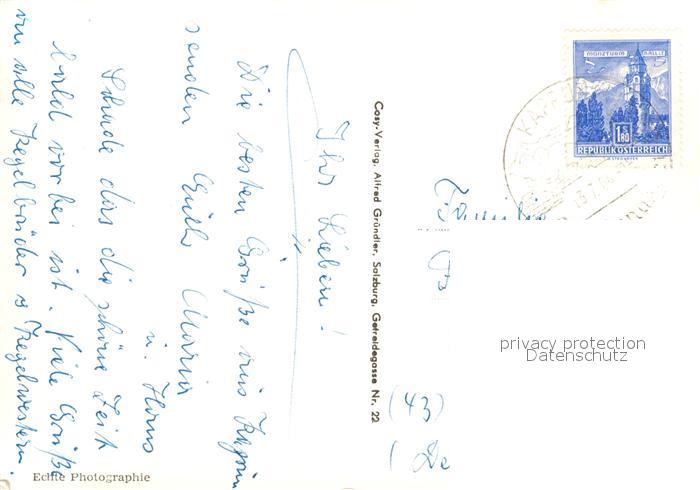 Ihr Lieben!
Die besten Grüße aus
senden Euch Maria
u. Hans
Schade das die schöne Zeit
bald vorbei ist. Viele Grüße
an alle Kegelbrüder u Kegelschwestern.
Echte Photographie
Cosy-Verlag, Alfred Gründler, Salzburg, Getreidegasse Nr. 22
MÜNZTURM HALL I. T.
1.80 S
REPUBLIK ÖSTERREICH
KAPRUN
Familie
(43)
(De
privacy protection
Datenschutz